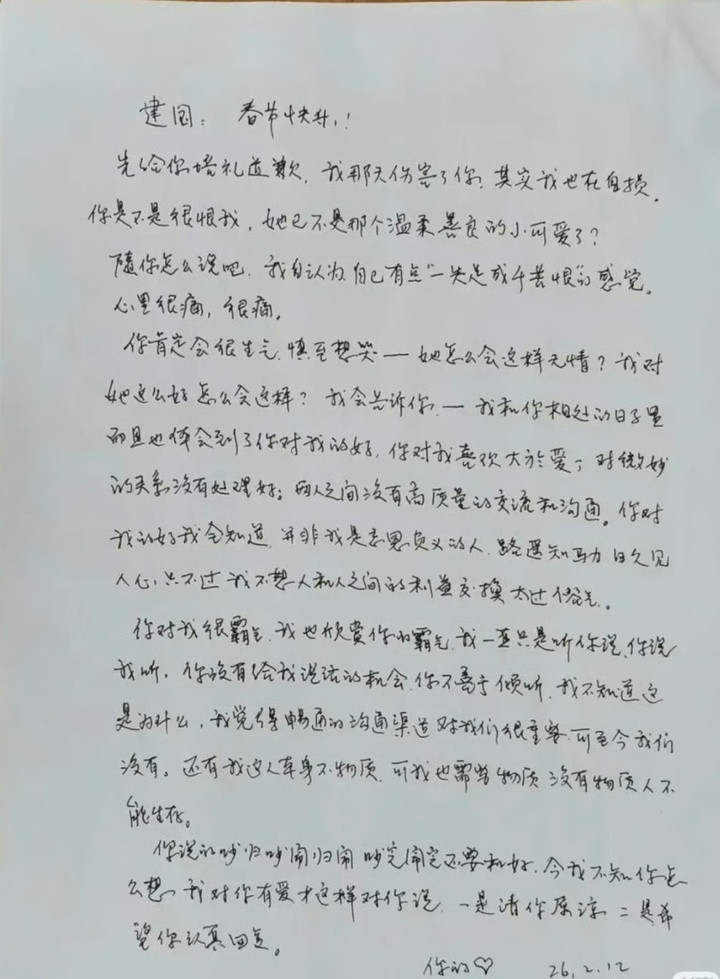 建国：春节快乐！
先给你赔礼道歉，我那天伤害了你，其实我也在自损。
你是不是很恨我，她已不是那个温柔善良的小可爱了？
随你怎么说吧，我自认为自己有点“一失足成千苦恨”的感觉。
心里很痛，很痛。
你肯定会很生气，慎至想哭——她怎么会这样无情？我对
她这么好怎么会这样？我会告诉你，——我和你相处的日子里
而且也体会到了你对我的好，你对我喜欢大於爱，对微妙
的关系没有处理好；两人之间没有高质量的交流和沟通。你对
我的好我全知道，并非我是忘恩负义的人，路遥知马力日久见
人心，只不过我不想人和人之间的利益交换太过俗气。
你对我很霸气，我也欣赏你的霸气，我一直只是听你说，你说
我听，你没有给我说话的机会，你不善于倾听，我不知道这
是为什么，我觉得畅通的沟通渠道对我们很重要，可至今我们
没有。还有我这人本身不物质，可我也需要物质，没有物质人不
能生存。
你说的吵归吵闹归闹吵完闹完还要和好，今我不知你怎
么想，我对你有爱才这样对你说，一是请你原谅，二是希
望你认真回复。
你的♡ 26.2.12